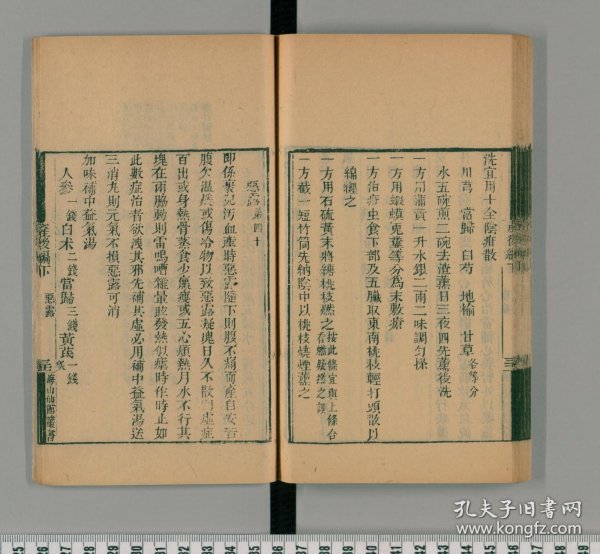 洗宜用十全陰疳散
川芎 當歸 白芍 地榆 甘草各等分
水五碗煎二碗去渣薰日三夜四先薰後洗
一方用蒲黃一升水銀二兩二味調勻搽
一方用蝦蟆兔糞等分爲末敷瘡
一方治疳虫食下部及五臟取東南桃枝輕打頭散以
綿纏之
一方用石硫黃末將綿桃枝燃之
一方截一短竹筒先納陰中以桃枝燒煙薰之
惡露第四十
即係裹兒汚血產時惡露隨下則腹不痛而產自安若
腹欠温煖或傷冷物以致惡露凝塊日久不散則虛症
百出或身熱骨蒸食少羸瘦或五心煩熱月水不行其
塊在兩脇動則雷鳴嘈雜暈眩發熱似瘧時作時止如
此數症治者欲洩其邪先補其虛必用補中益氣湯送
三消丸則元氣不損惡露可消
加味補中益氣湯
人參一錢 白术二錢 當歸三錢 黃茋一錢
產後編下
惡露
海山仙館叢書
孔夫子旧书网
www.kongfz.com
25 26 27 28 29 30 31 32 33 34 35 36 37 38 39 40 41 42 43 44 45 46 47 48 49